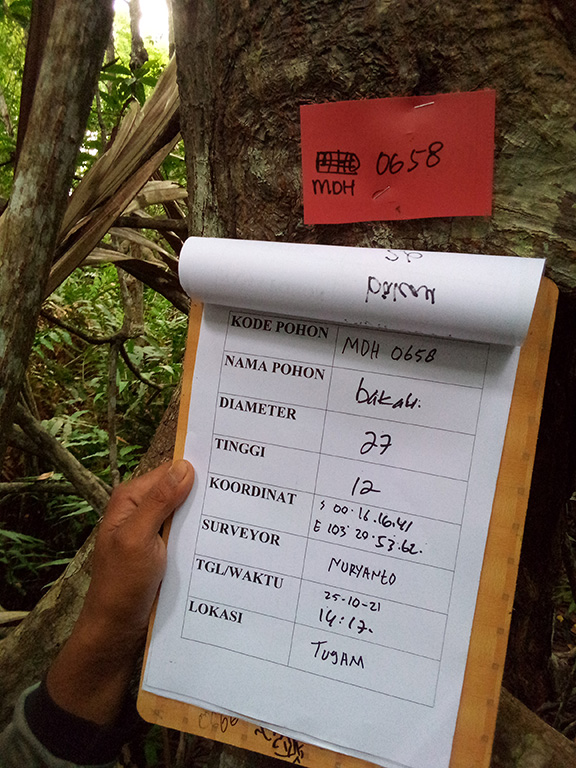 MDH 0658
KODE POHON MDH 0658
NAMA POHON bakau.
DIAMETER 27
TINGGI 12
KOORDINAT S 00.16.16.41
E 103 20.53.62.
SURVEYOR NURYANTO
TGL/WAKTU 25-10-21
14:17.
LOKASI TUGAM